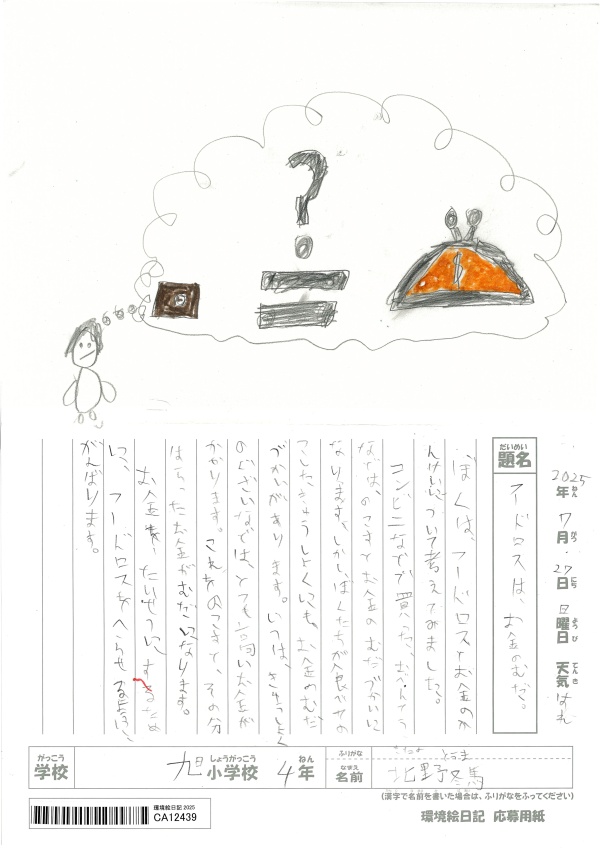 5
?
=
2025年7月27日日曜日 天気はれ
だいめい
題名
フードロスは、お金のむだ。
ねん がつ にち ようび てんき
ぼくは、フードロスとお金のか
んけいについて考えてみました。
コンビニなどで買った、おべんとう
などは、のこすとお金のむだづかいに
なります。しかし、ぼくたちが食べての
こしたきゅうしょくにも、お金のむだ
づかいがあります。じつは、きゅうしょく
のざいなどは、とても高いお金が
かかります。これをのこすと、その分
はらったお金がむだになります。
お金を、たいせつに、するため
に、フードロスをへらせるように、
がんばります。
がっこう
学校
旭小学校 4年
しょうがっこう ねん
ふりがな
きたの とうま
なまえ
名前
北野冬馬
(漢字で名前を書いた場合は、ふりがなをふってください)
環境絵日記 2025
CA12439
環境絵日記 応募用紙